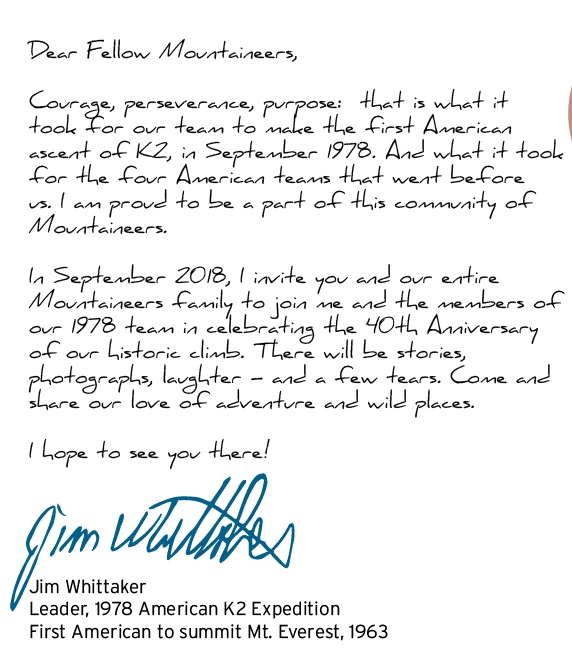 Dear Fellow Mountaineers,
Courage, perseverance, purpose: that is what it
took for our team to make the first American
ascent of K2, in September 1978. And what it took
for the four American teams that went before
us. I am proud to be a part of this community of
Mountaineers.
In September 2018, I invite you and our entire
Mountaineers family to join me and the members of
our 1978 team in celebrating the 40th Anniversary
of our historic climb. There will be stories,
photographs, laughter – and a few tears. Come and
share our love of adventure and wild places.
I hope to see you there!
Jim Whittaker
Jim Whittaker
Leader, 1978 American K2 Expedition
First American to summit Mt. Everest, 1963